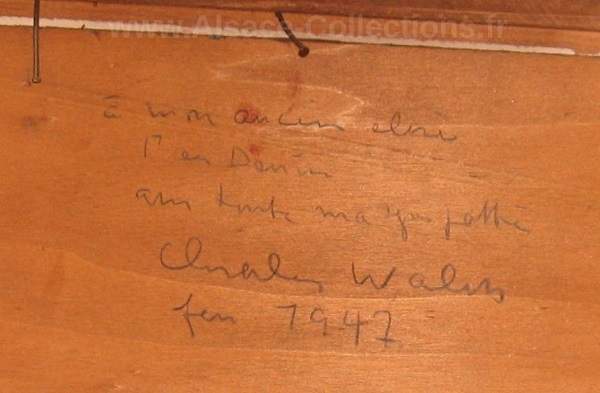 www.Alsace-Collections.fr
à mon ancien élève
en
avec toute ma sympathie
Charles Walch
1947